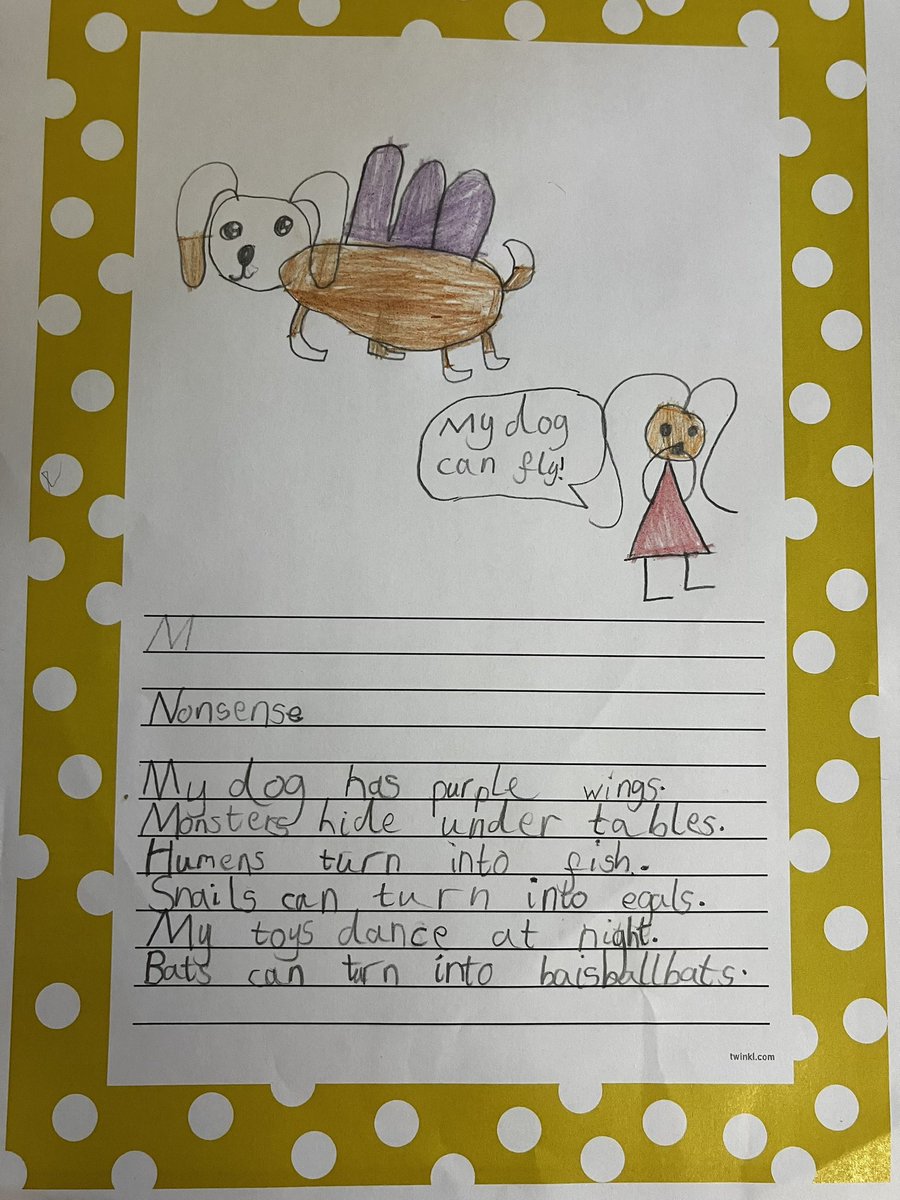 My dog
can fly!
M
Nonsense
My dog has purple wings.
Monsters hide under tables.
Humens turn into fish.
Snails can turn into egals.
My toys dance at night.
Bats can turn into baisballbats.
twinkl.com